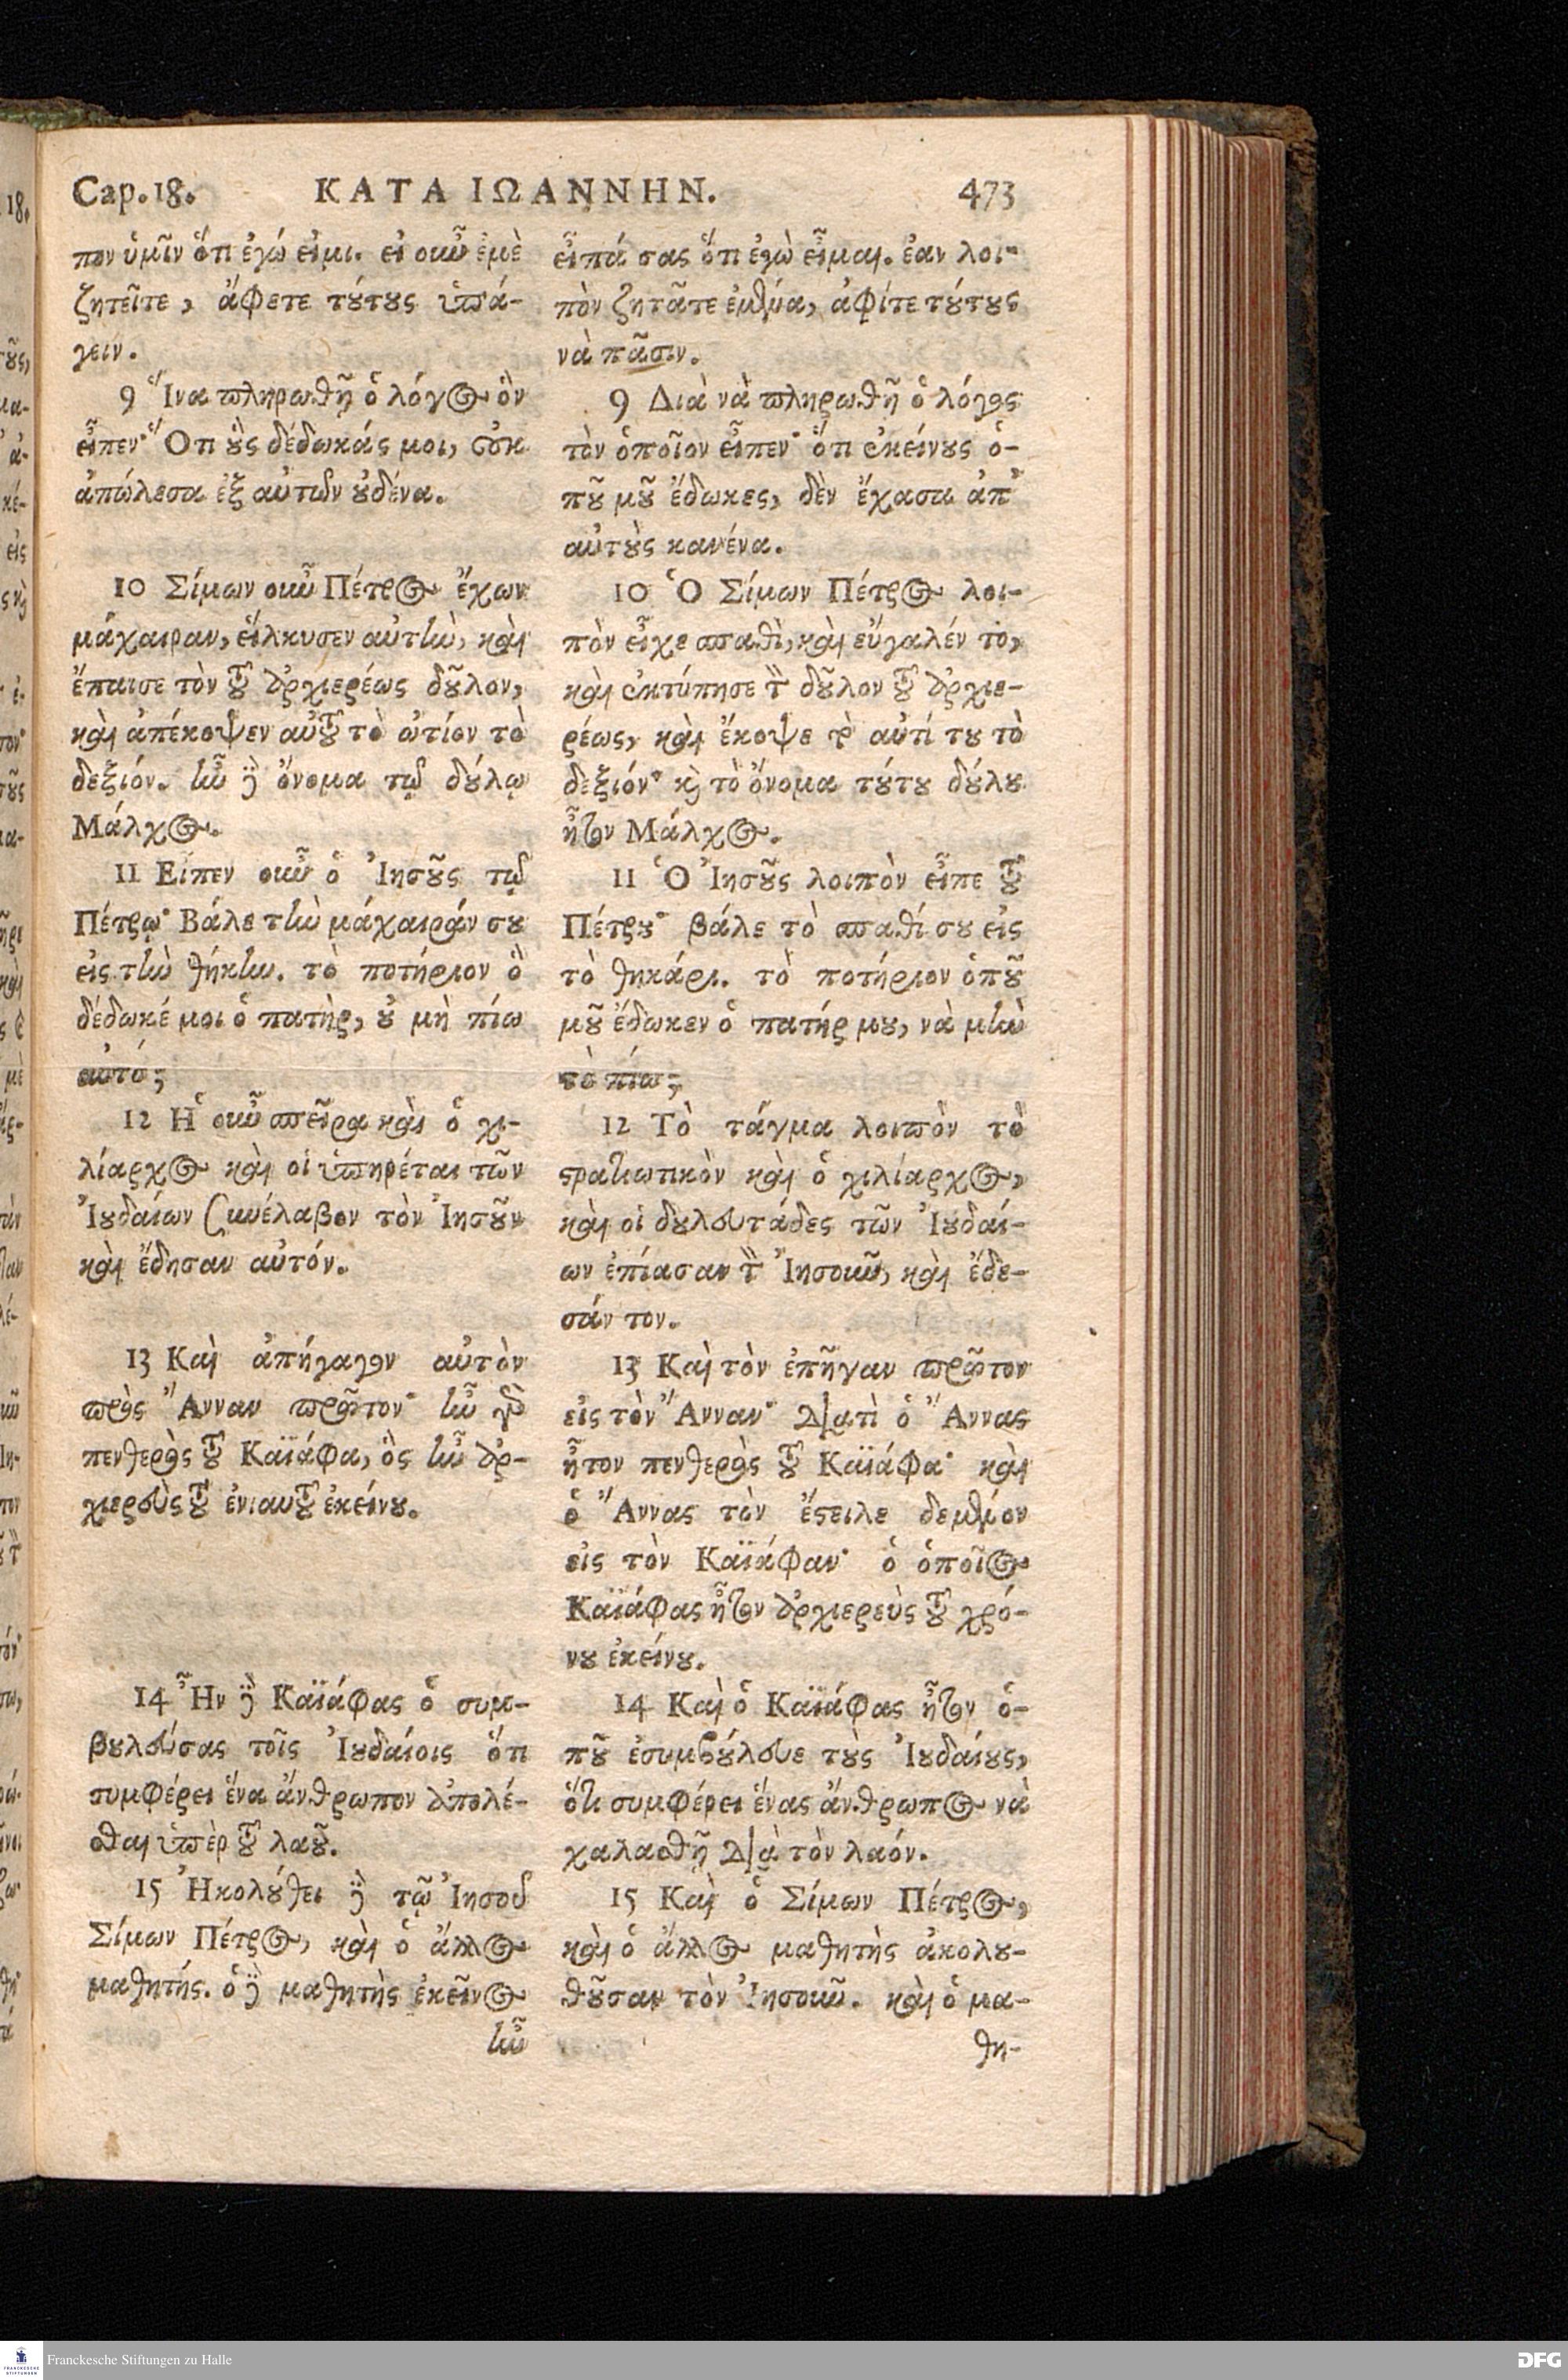 Cap. 18. ΚΑΤΑ ΙΩΑΝΝΗΝ. 473
πον ὑμῖν ὅτι ἐγώ εἰμι. εἰ οὖν ἐμὲ
ζητεῖτε, ἄφετε τούτους ὑπά-
γειν.
9 Ἵνα πληρωθῇ ὁ λόγος ὃν
εἶπεν· Ὅτι οὓς δέδωκάς μοι, οὐκ
ἀπώλεσα ἐξ αὐτῶν οὐδένα.
10 Σίμων οὖν Πέτρος ἔχων
μάχαιραν, εἵλκυσεν αὐτὴν, καὶ
ἔπαισε τὸν τοῦ ἀρχιερέως δοῦλον,
καὶ ἀπέκοψεν αὐτοῦ τὸ ὠτίον τὸ
δεξιόν. ἦν δὲ ὄνομα τῷ δούλῳ
Μάλχος.
11 Εἶπεν οὖν ὁ Ἰησοῦς τῷ
Πέτρῳ· Βάλε τὴν μάχαιράν σου
εἰς τὴν θήκην. τὸ ποτήριον ὃ
δέδωκέ μοι ὁ πατὴρ, οὐ μὴ πίω
αὐτό;
12 Ἡ οὖν σπεῖρα καὶ ὁ χι-
λίαρχος καὶ οἱ ὑπηρέται τῶν
Ἰουδαίων συνέλαβον τὸν Ἰησοῦν
καὶ ἔδησαν αὐτόν.
13 Καὶ ἀπήγαγον αὐτὸν
πρὸς Ἄνναν πρῶτον· ἦν γὰρ
πενθερὸς τοῦ Καϊάφα, ὃς ἦν ἀρ-
χιερεὺς τοῦ ἐνιαυτοῦ ἐκείνου.
14 Ἦν δὲ Καϊάφας ὁ συμ-
βουλεύσας τοῖς Ἰουδαίοις ὅτι
συμφέρει ἕνα ἄνθρωπον ἀπολέ-
σθαι ὑπὲρ τοῦ λαοῦ.
15 Ἠκολούθει δὲ τῷ Ἰησοῦ
Σίμων Πέτρος, καὶ ὁ ἄλλος
μαθητής. ὁ δὲ μαθητὴς ἐκεῖνος
ἦν
εἶπά σας ὅτι ἐγὼ εἶμαι. ἐὰν λοι-
πὸν ζητᾶτε ἐμένα, ἀφίτε τούτους
νὰ πᾶσιν.
9 Διὰ νὰ πληρωθῇ ὁ λόγος
τὸν ὁποῖον εἶπεν· ὅτι ἐκείνους ὁ-
ποῦ μοῦ ἔδωκες, δὲν ἔχασα ἀπ'
αὐτοὺς κανένα.
10 Ὁ Σίμων Πέτρος λοι-
πὸν εἶχε σπαθὶ, καὶ εὔγαλέν το,
καὶ ἐκτύπησε τὸν δοῦλον τοῦ ἀρχιε-
ρέως, καὶ ἔκοψε τὸ αὐτί του τὸ
δεξιόν· καὶ τὸ ὄνομα τούτου δούλου
ἦτον Μάλχος.
11 Ὁ Ἰησοῦς λοιπὸν εἶπε τοῦ
Πέτρου· βάλε τὸ σπαθί σου εἰς
τὸ θηκάρι. τὸ ποτήριον ὁποῦ
μοῦ ἔδωκεν ὁ πατήρ μου, νὰ μὴν
τὸ πίω;
12 Τὸ τάγμα λοιπὸν τὸ
στρατιωτικὸν καὶ ὁ χιλίαρχος,
καὶ οἱ δουλευτάδες τῶν Ἰουδαί-
ων ἐπίασαν τὸν Ἰησοῦν, καὶ ἔδε-
σάν τον.
13 Καὶ τὸν ἐπῆγαν πρῶτον
εἰς τὸν Ἄνναν· διατὶ ὁ Ἄννας
ἦτον πενθερὸς τοῦ Καϊάφα· καὶ
ὁ Ἄννας τὸν ἔστειλε δεμένον
εἰς τὸν Καϊάφαν· ὁ ὁποῖος
Καϊάφας ἦτον ἀρχιερεὺς τοῦ χρό-
νου ἐκείνου.
14 Καὶ ὁ Καϊάφας ἦτον ὁ-
ποῦ ἐσυμβούλευε τοὺς Ἰουδαίους,
ὅτι συμφέρει ἕνας ἄνθρωπος νὰ
χαλασθῇ διὰ τὸν λαόν.
15 Καὶ ὁ Σίμων Πέτρος,
καὶ ὁ ἄλλος μαθητὴς ἀκολου-
θοῦσαν τὸν Ἰησοῦν. καὶ ὁ μα-
θη-
FRANCKESCHE STIFTUNGEN
Franckesche Stiftungen zu Halle
DFG